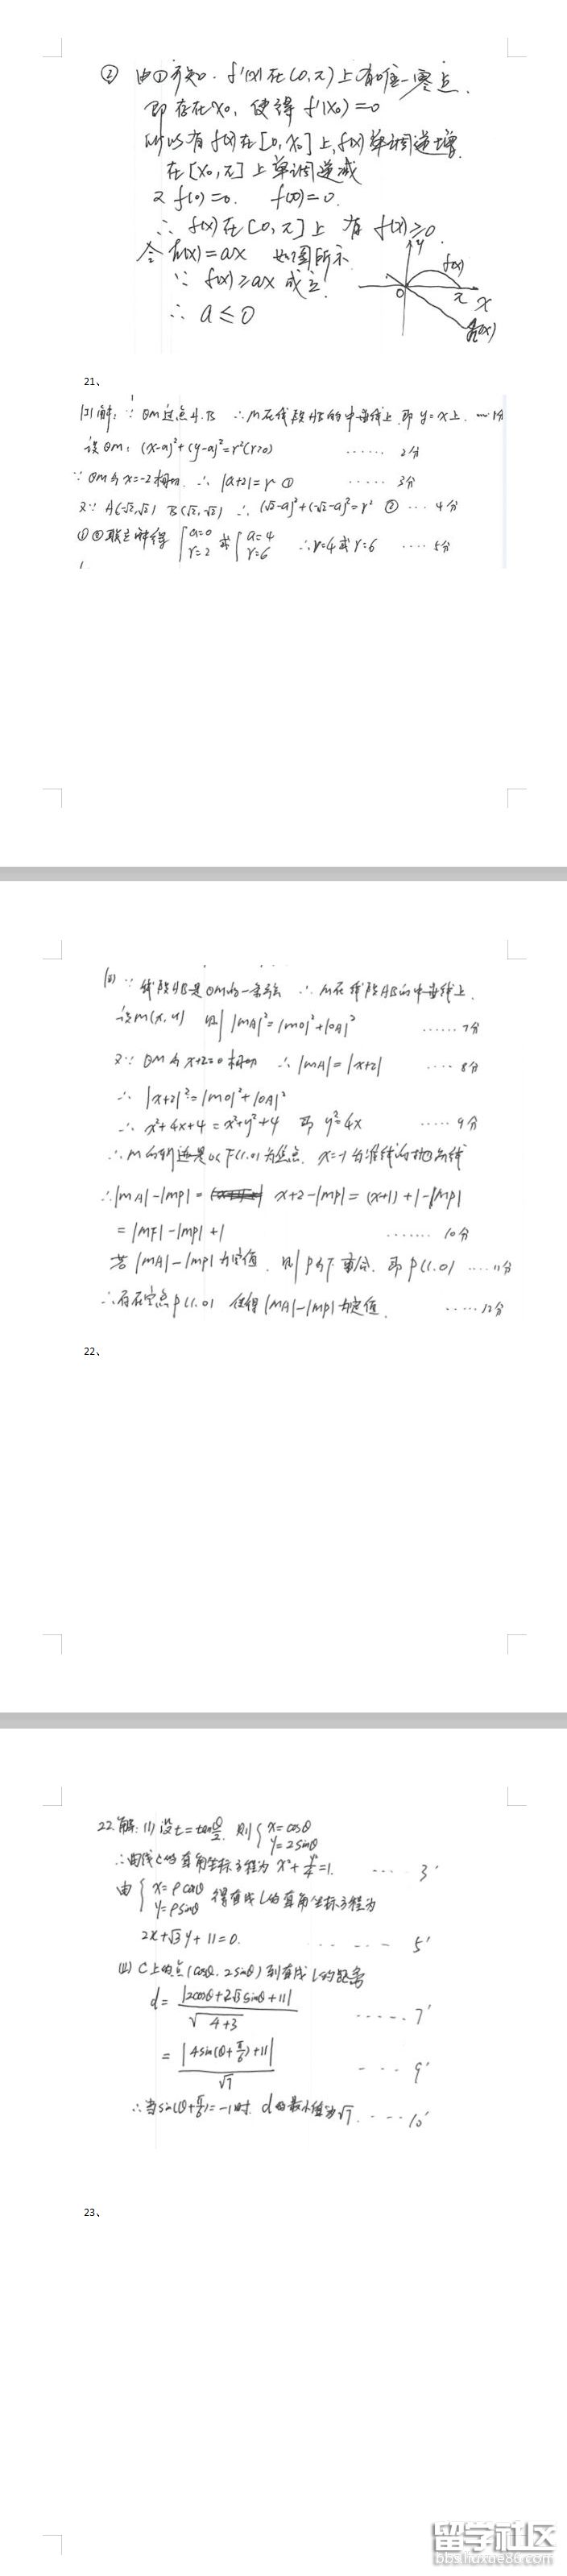 ② 由①可知. f'(x)在(0,π)上有唯一零点.
即存在x₀, 使得 f'(x₀)=0
所以有f(x)在[0,x₀]上,f(x)单调递增.
在[x₀,π]上单调递减
又f(0)=0. f(π)=0.
∴ f(x)在[0,π]上 有 f(x)≥0.
令h(x)=ax 如图所示
∵ f(x)≥ax 成立!
∴ a≤0
y
f(x)
0 π x
h(x)
21、
解: ∵ ⊙M过点A.B ∴M在线段AB的中垂线上.即 y=x上. ...1分
设⊙M: (x-a)²+(y-a)²=r²(r>0) ...... 2分
∵ ⊙M与x=-2相切. ∴ |a+2|=r ① ...... 3分
又∵ A(-√2,√2) B(√2,-√2) ∴ (√2-a)²+(-√2-a)²=r² ② ... 4分
①②联立解得 {a=0 r=2 或 {a=4 r=6 ∴r=4或r=6 .... 5分
∵ 线段AB是⊙M的一条弦 ∴ M在线段AB的中垂线上.
设M(x,y) 则 |MA|²=|MO|²+|OA|² ...... 7分
又∵ ⊙M与x+2=0相切 ∴ |MA|=|x+2| .... 8分
∴ |x+2|²=|MO|²+|OA|²
∴ x²+4x+4=x²+y²+4 即 y²=4x ...... 9分
∴M的轨迹是以F(1.0)为焦点. x=-1为准线的抛物线
∴|MA|-|MP|= x+2-|MP|=(x+1)+1-|MP|
=|MF|-|MP|+1 ....... 10分
若|MA|-|MP|为定值. 则P与F重合. 即P(1.0) .....11分
∴存在定点P(1.0) 使得|MA|-|MP|为定值. .....12分
22、
22.解: (1) 设t=tanθ/2. 则 {x=cosθ y=2sinθ
∴曲线C的直角坐标方程为 x²+y²/4=1. .... 3'
由 {x=ρcosθ y=ρsinθ 得直线l的直角坐标方程为
2x+√3y+11=0. ........ 5'
(2) C上的点(cosθ.2sinθ)到直线l的距离
d=|2cosθ+2√3sinθ+11|/√4+3 ..... 7'
=|4sin(θ+π/6)+11|/√7 .... 9'
∴当sin(θ+π/6)=-1时. d的最小值为√7. .... 10'
23、
留学社区
bbs.liuxue86.com